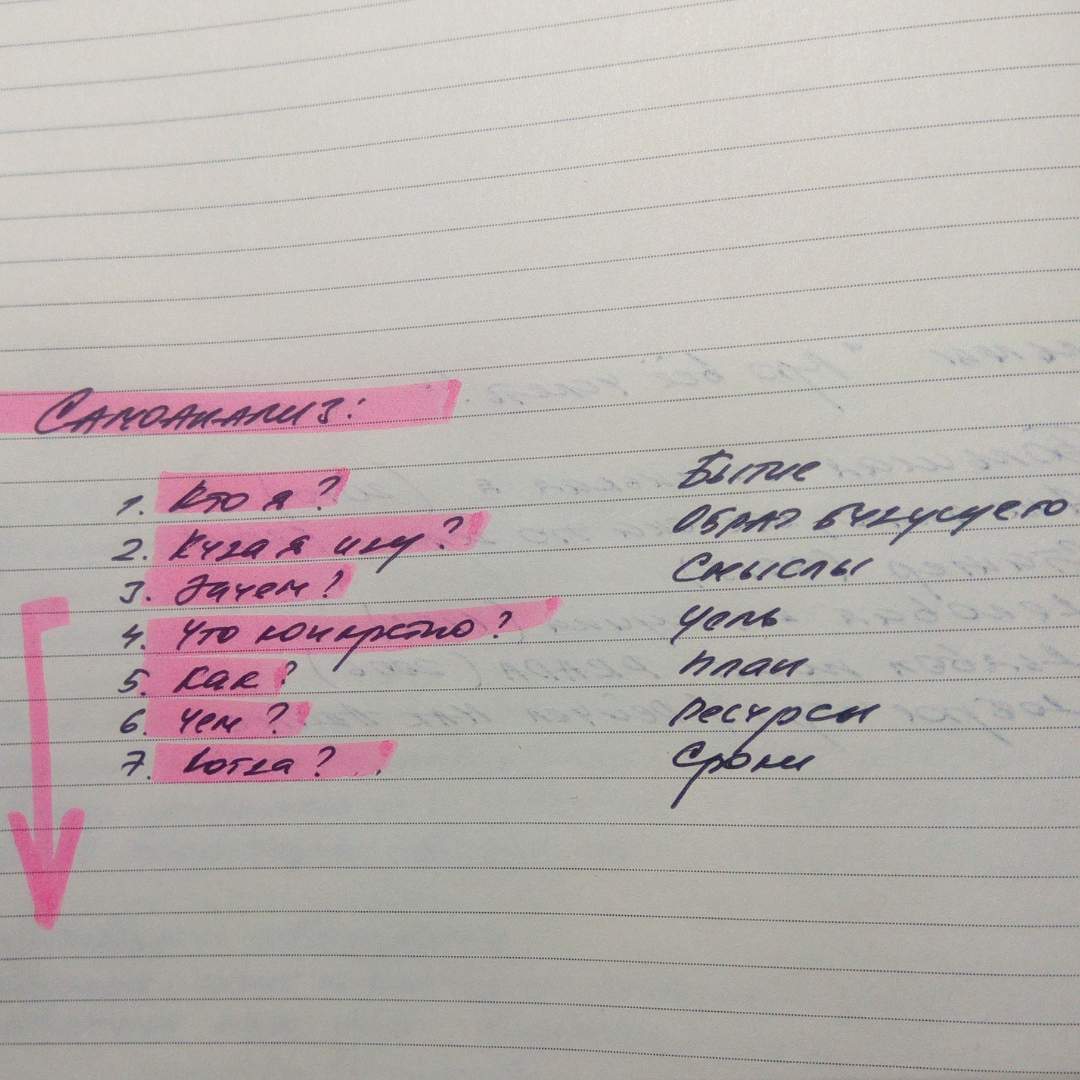 Самоанализ:
1. Кто я? Бытие
2. Куда я иду? Образ будущего
3. Зачем? Смыслы
4. Что конкретно? Цель
5. Как? План
6. Чем? Ресурсы
7. Когда? Сроки